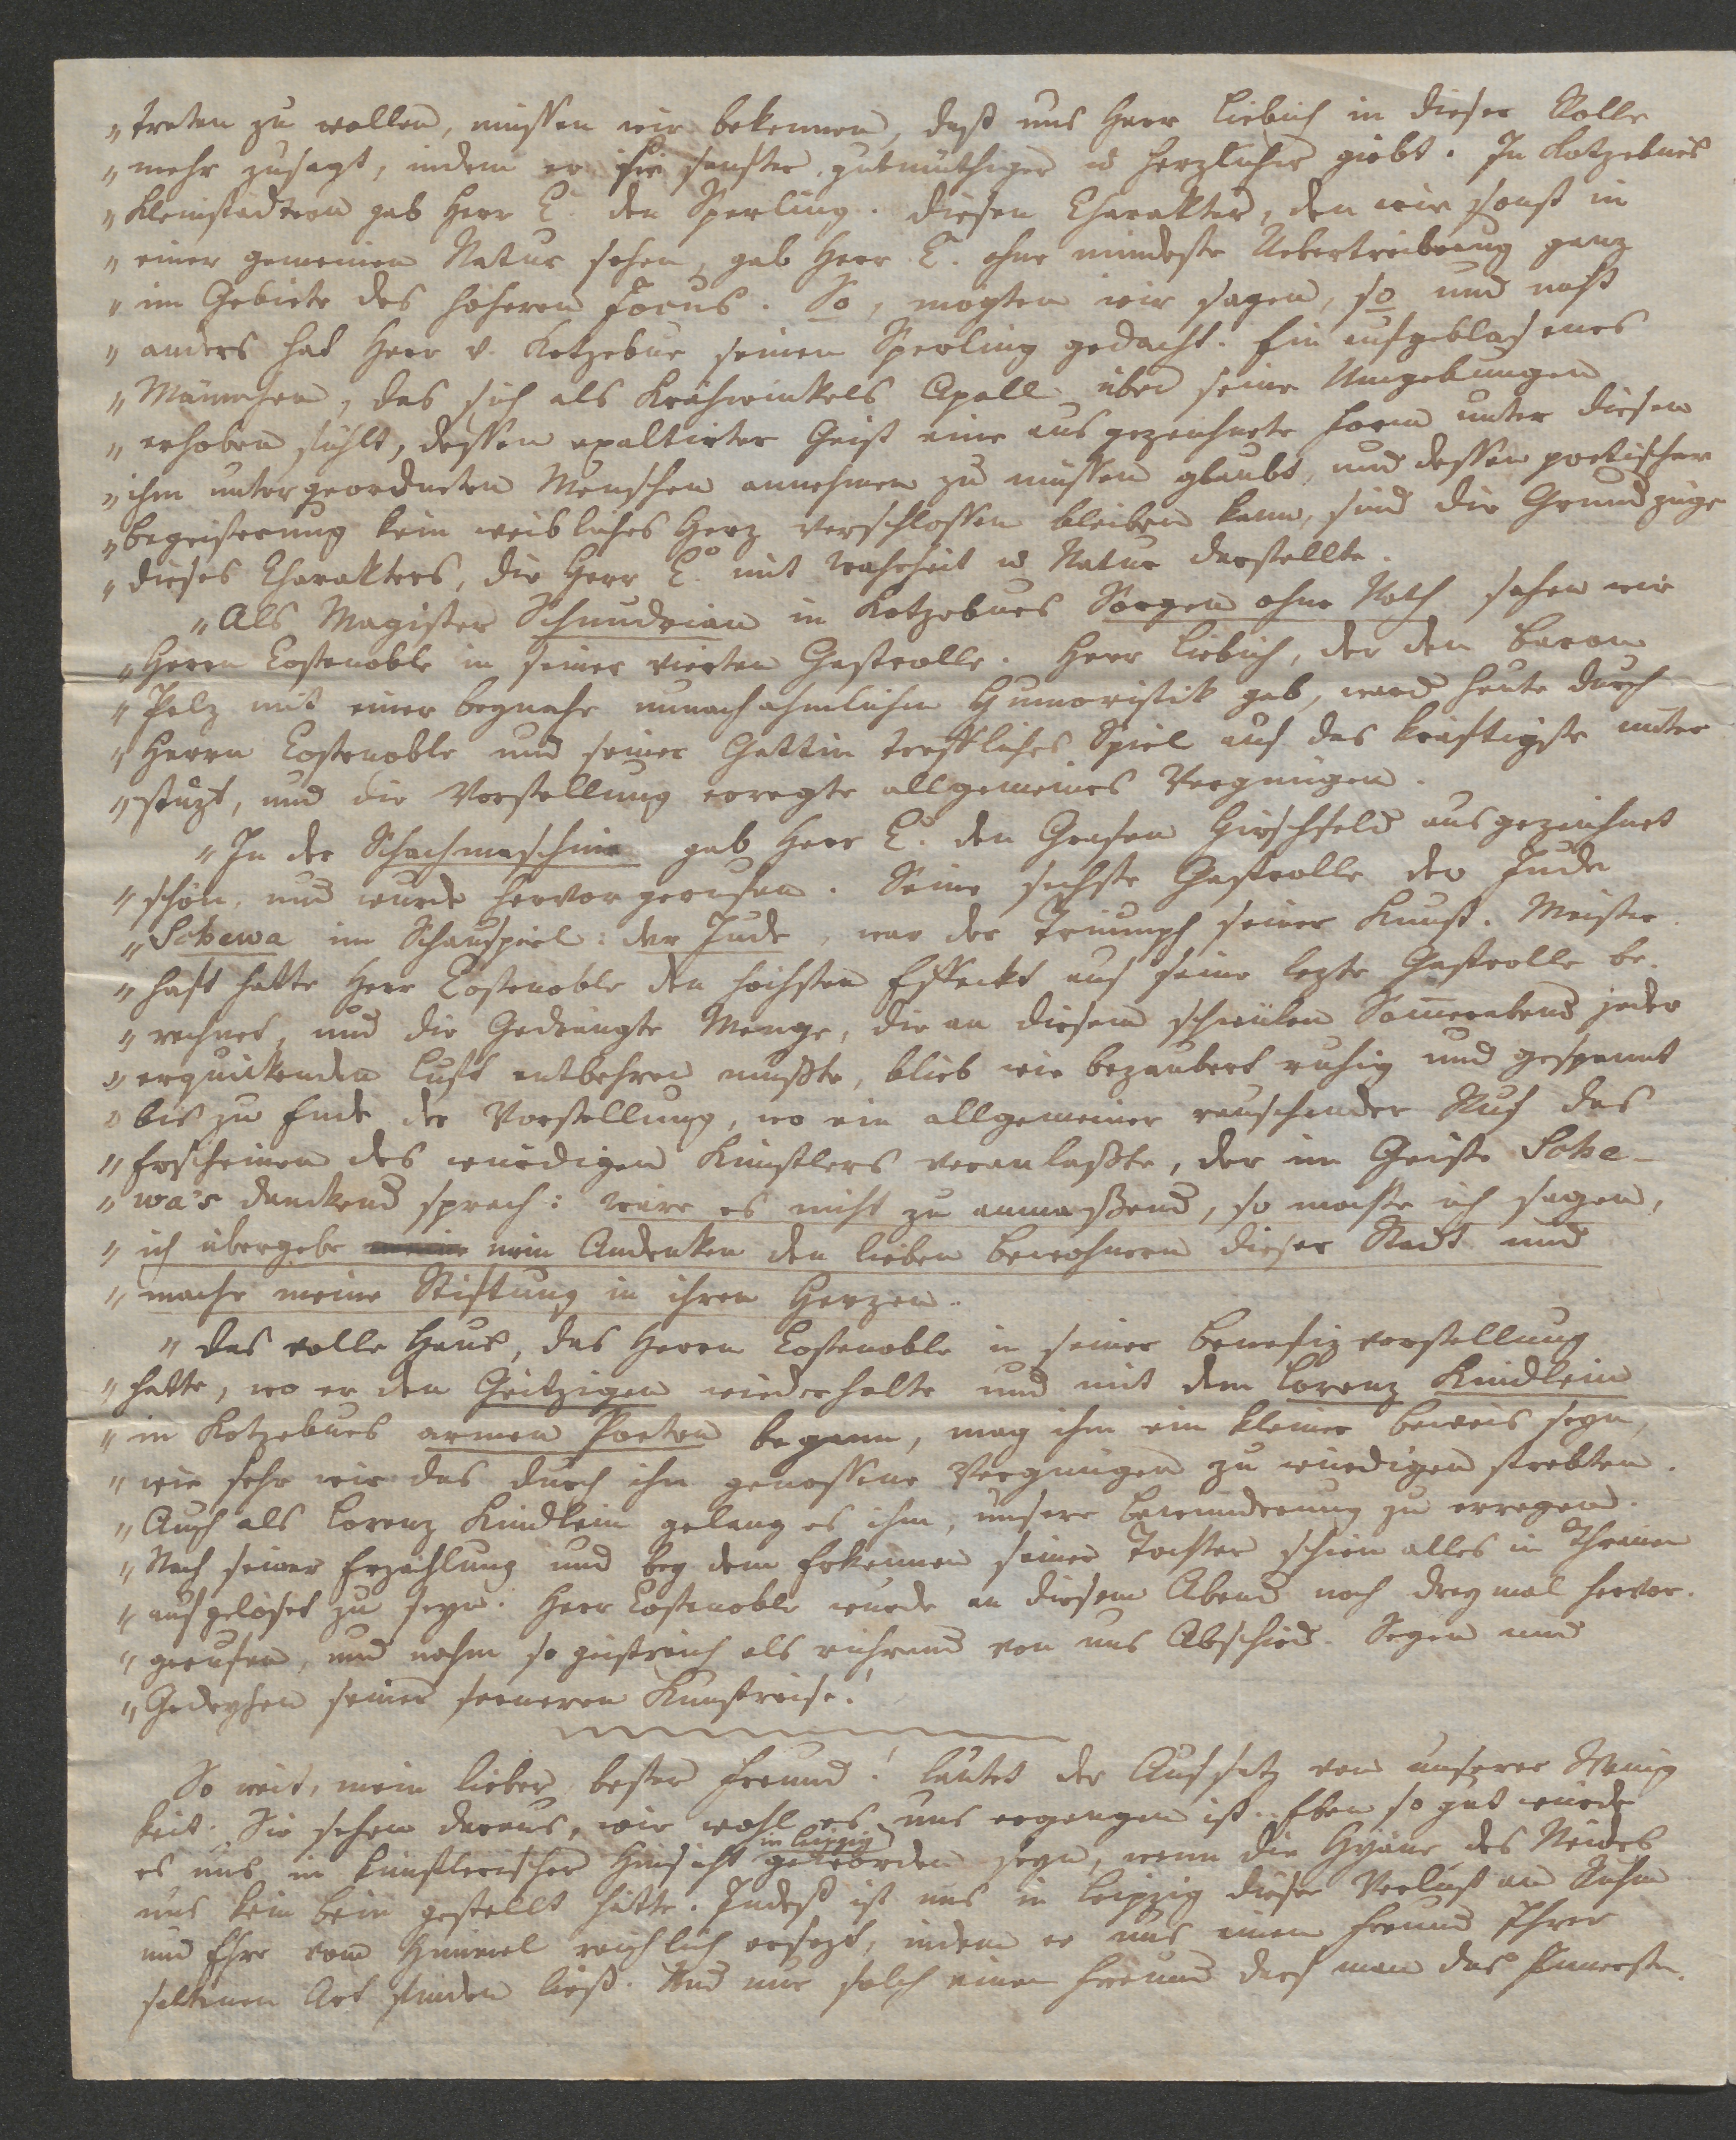 „treten zu wollen, müssen wir bekennen, daß uns Herr Liebich in dieser Rolle
„mehr zusagt, indem er sie sanfter, gutmüthiger u herzlicher giebt. In Kotzebue's
„Kleinstädtern gab Herr C. den Sperling. Diesen Charakter, den wir sonst in
„einer gemeinen Natur sehen, gab Herr C. ohne mindeste Uebertreibung ganz
„im Gebiete des höheren Jocus. So, mögten wir sagen, so und nicht
„anders hat Herr v. Kotzebue seinen Sperling gedacht. Ein aufgeblasenes
„Männchen, das sich als Krähwinkels Apoll über seine Umgebungen
„erhoben fühlt, dessen exaltirter Geist eine ausgezeichnete Form unter diesen
„ihm untergeordneten Menschen annehmen zu müssen glaubt, und dessen poetischer
„Begeisterung kein weibliches Herz verschlossen bleiben kann, sind die Grundzüge
„dieses Charakters, die Herr C. mit Wahrheit u Natur darstellte.
„Als Magister Schnudrian in Kotzebues Sorgen ohne Noth sahen wir
„Herrn Costenoble in seiner vierten Gastrolle. Herr Liebich, der den Baron
„Pelz mit einer beynahe unnachahmlichen Humoristik gab, ward heute durch
„Herrn Costenoble und seiner Gattin treffliches Spiel auf das kräftigste unter
„stüzt, und die Vorstellung erregte allgemeines Vergnügen.
„In der Schachmaschine gab Herr C. den Grafen Hirschfeld ausgezeichnet
„schön, und wurde hervorgerufen. Seine sechste Gastrolle der Jude
„Schewa im Schauspiel: der Jude, war der Triumph seiner Kunst. Meister
„haft hatte Herr Costenoble den höchsten Effeckt auf seine lezte Gastrolle be-
„rechnet, und die Gedrängte Menge, die an diesem schwülen Som̅erabend jeder
„erquickenden Luft entbehren mußte, blieb wie bezaubert ruhig und gespannt
„bis zu Ende der Vorstellung, wo ein allgemeiner rauschender Ruf das
„Erscheinen des würdigen Künstlers veranlaßte, der im Geiste Sche-
„wa's danckend sprach: wäre es nicht zu anmaßend, so mögte ich sagen,
„ich übergebe mein Andenken den lieben Bewohnern dieser Stadt und
„mache meine Stiftung in ihren Herzen.
„Das volle Haus, das Herrn Costenoble in seiner Benefizvorstellung
„hatte, wo er den Geitzigen wiederholte und mit dem Lorenz Kindlein
„in Kotzebues armen Poeten begann, mag ihm ein kleiner Beweis seyn,
„wie sehr wir das durch ihn genossene Vergnügen zu würdigen strebten.
„Auch als Lorenz Kindlein gelang es ihm, unsere Bewunderung zu erregen.
„Nach seiner Erzählung und bey dem Erkennen seiner Tochter schien alles in Thränen
„aufgelöset zu seyn. Herr Costenoble wurde an diesem Abend noch dreymal hervor-
„gerufen, und nahm so geistreich als rührend von uns Abschied. Segen und
„Gedeyhen seiner ferneren Kunstreise!
So weit, mein lieber, bester Freund! lautet der Aufsatz von unserer Wenig
keit. Sie sehen daraus, wie wohl es uns ergangen ist. Eben so gut würde
es uns in künstlerischer Hinsicht in Leipzig geworden seyn, wenn die Hyäne des Neides
uns kein Bein gestellt hätte. Indeß ist uns in Leipzig dieser Verlust an Ruhm
und Ehre vom Himmel reichlich ersezt, indem er uns einen Freund Ihrer
seltenen Art finden ließ. Und nur solch einem Freund darf man das Innerste